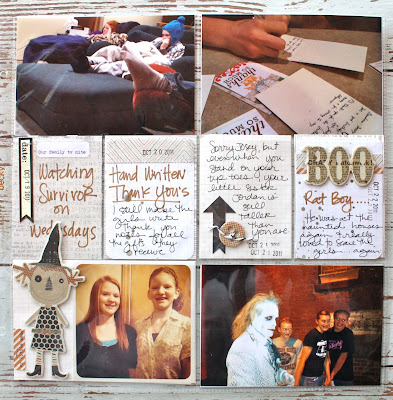 thanks
so
date:
OCT 19 2011
Our family to site
Watching
Survivor
on
Wednesdays
OCT 20 2011
Hand Written
Thank You's
I still make the
girls write
thank you
notes for all
the gifts they
receive
Sorry Josey, but
even when you
stand on your
tip toes & your
little sister
Jordan is
still
taller
than
you are
OCT 21 2011
OCT 21 2011
BOO
Rat Boy....
He was at the
haunted houses
again & really
loved to scare the
girls... again